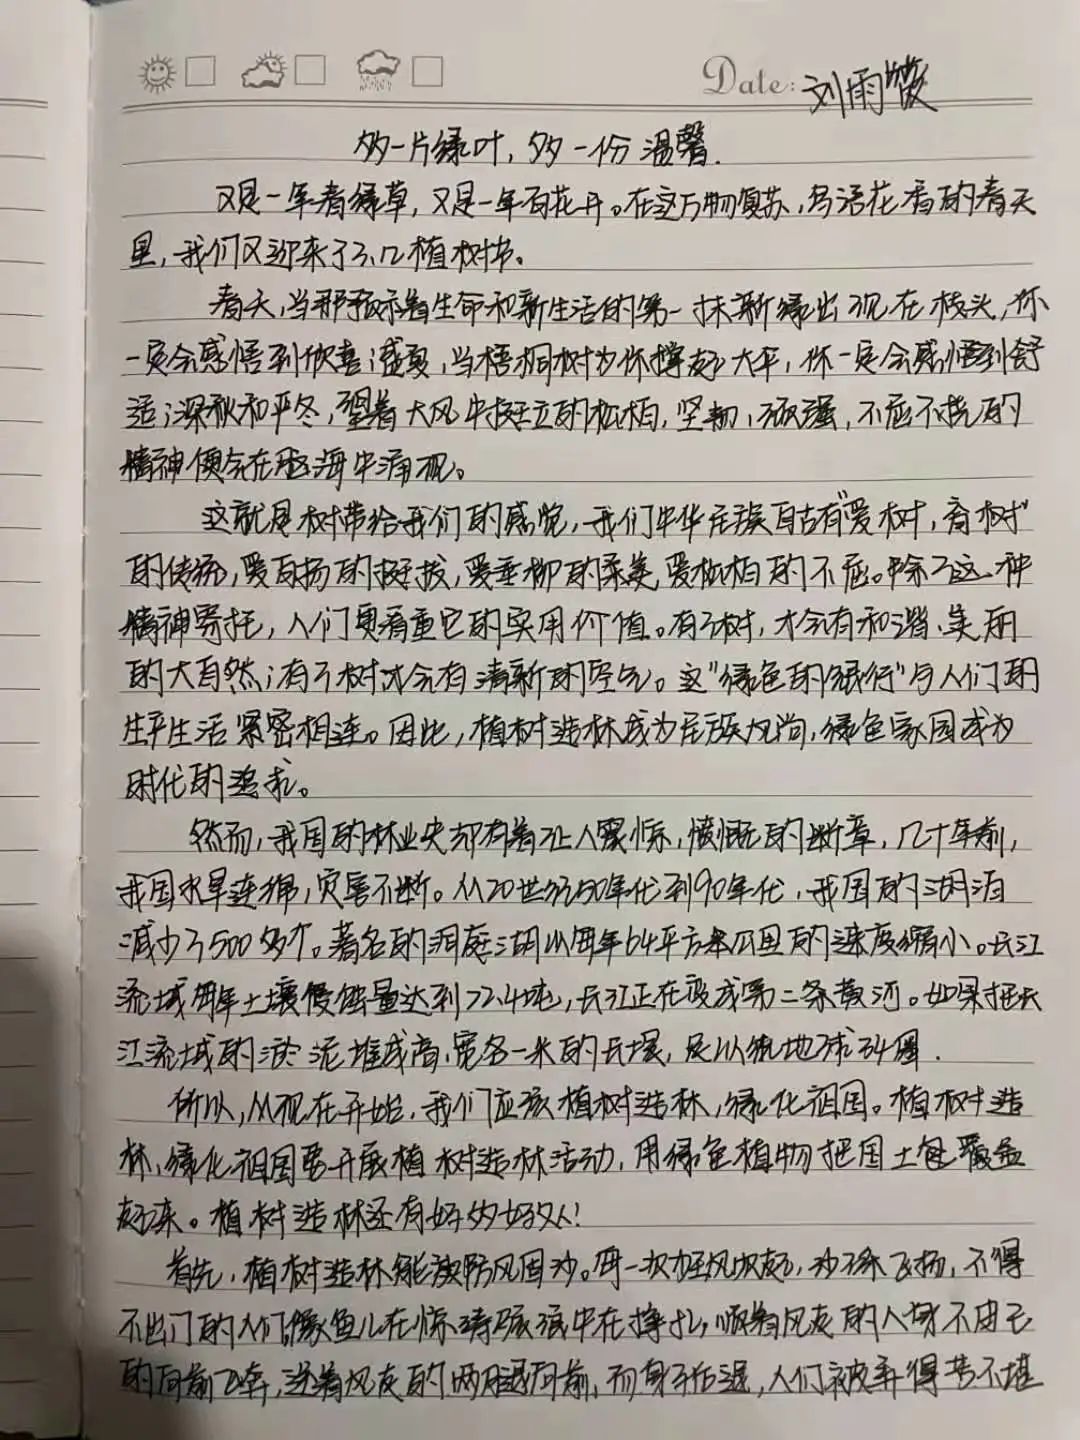 Date: 刘雨薇
多一片绿叶，多一份温馨.
又是一年春绿草，又是一年百花开。在这万物复苏，鸟语花香的春天
里，我们又迎来了3.12植树节。
春天，当那预示着生命和新生活的第一抹新绿出现在枝头，你
一定会感悟到欣喜；盛夏，当梧桐树为你撑起大伞，你一定会感悟到舒
适；深秋和严冬，望着大风中挺立的松柏，坚韧，顽强，不屈不挠的
精神便会在脑海中涌现。
这就是树带给我们的感觉，我们中华民族自古有“爱树，育树”
的传统，爱白杨的挺拔，爱垂柳的柔美，爱松柏的不屈。除了这种
精神寄托，人们更看重它的实用价值。有了树，才会有和谐、美丽
的大自然；有了树才会有清新的空气。这“绿色的银行”与人们的
生产生活紧密相连。因此，植树造林成为民族风尚，绿色家园成为
时代的追求。
然而，我国的林业史却有着让人震惊，愤慨的断章，几十年前，
我国水旱连绵，灾害不断。从20世纪50年代到90年代，我国的湖泊
减少了500多个。著名的洞庭湖以每年64平方公里的速度缩小。长江
流域每年土壤侵蚀量达到22.4吨，长江正在变成第二条黄河。如果把长
江流域的淤泥堆成高，宽各一米的长堤，足以绕地球34圈.
所以，从现在开始，我们应该植树造林，绿化祖国。植树造
林，绿化祖国要开展植树造林活动，用绿色植物把国土包覆盖
起来。植树造林还有好多好处！
首先，植树造林能够防风固沙。每一次狂风吹起，沙尘飞扬，不得
不出门的人们像鱼儿在惊涛骇浪中在挣扎，顺着风走的人身不由己
的向前飞奔，逆着风走的两腿向前，而身子后退，人们被弄得苦不堪